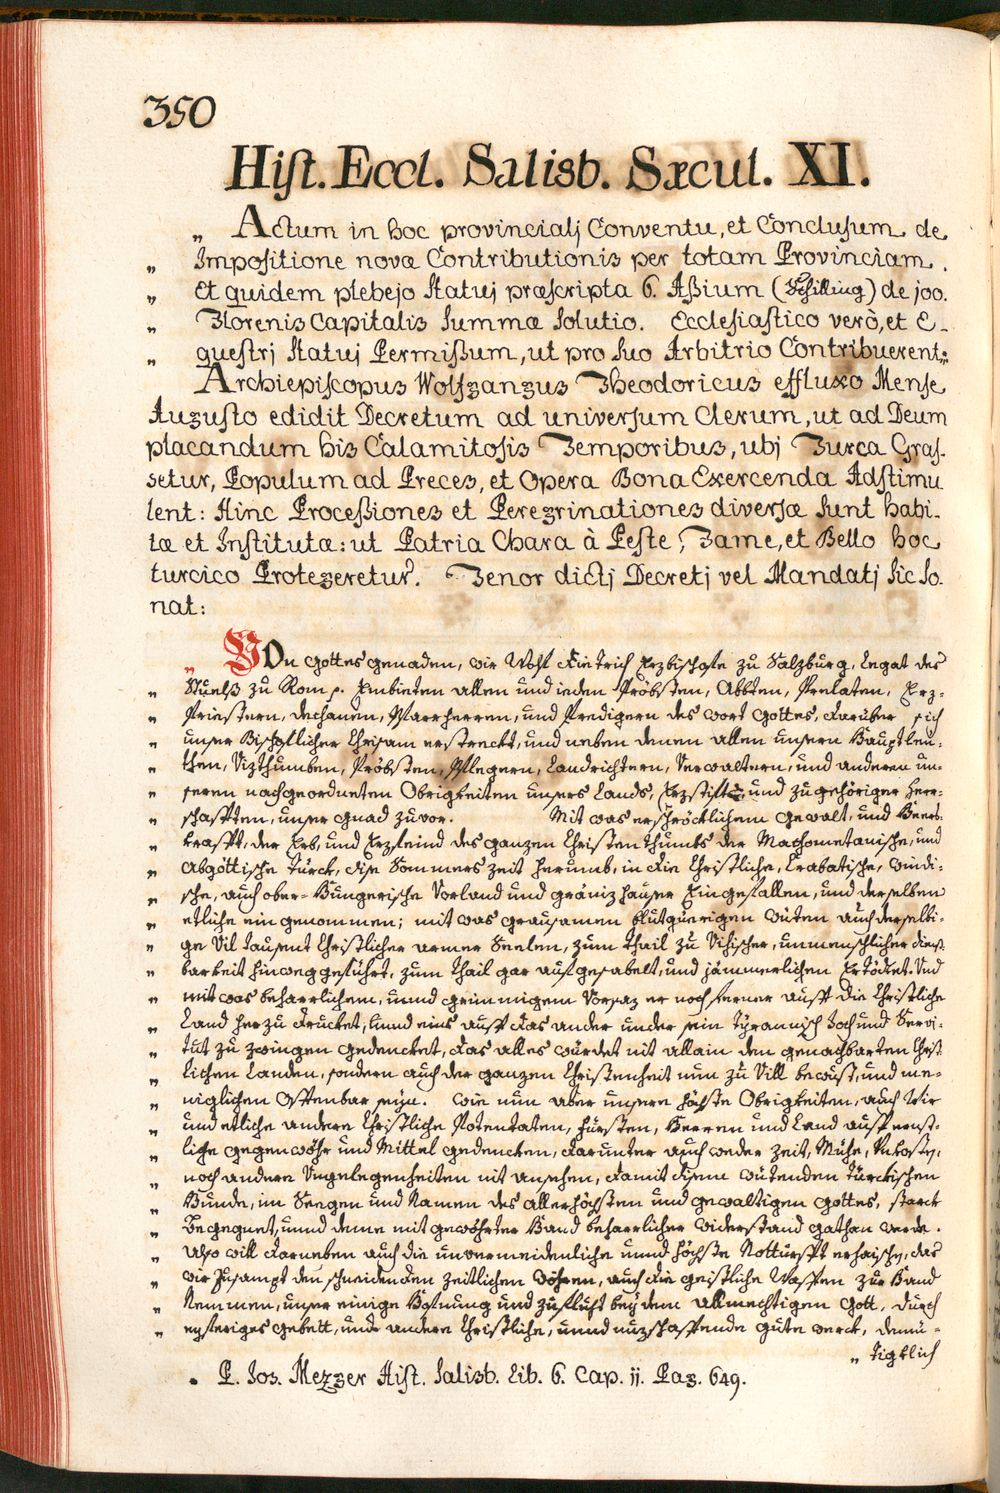 350
Hist. Eccl. Salisb. Sæcul. XI.
„ Actum in hoc provincialj Conventu, et Conclusum de
„ Impositione novæ Contributionis per totam Provinciam.
„ Et quidem plebejo Statuj præscripta 6. Aßium (Schilling) de joo.
„ Florenis Capitalis Summæ Solutio. Ecclesiastico verò, et E-
„ questrj Statuj Permißum, ut pro suo Arbitrio Contribuerent.
Archiepiscopus Wolfgangus Theodoricus effluxo Mense
Augusto edidit Decretum ad universum Clerum, ut ad Deum
placandum his Calamitosis Temporibus, ubj Turca Gras-
setur, Populum ad Preces, et Opera Bona Exercenda Adstimu
lent: Hinc Proceßiones et Peregrinationes diversæ sunt habi-
tæ et Institutæ: ut Patria Chara à Peste, Fame, et Bello hoc
turcico Protegeretur. Tenor dictj Decretj vel Mandatj sic so-
nat:
„ VOn Gottes genaden, wir Wolf Dietrich Erzbischofe zu Salzburg, Legat des
„ Stuelß zu Rom p. Embieten allen und ieden Pröbsten, Abbten, Prelaten, Erz-
„ Priestern, Dechanen, Pfarrherren, und Predigern des wort Gottes, darüber sich
„ unser Bischofflicher Chrisam erstreckt, und neben denen allen unsern Hauptleu-
„ then, Vizthumben, Pröbsten, Pflegern, Landrichtern, Verwaltern, und anderen un-
„ seren nachgeordneten Obrigkeiten unsers Lands, Erzstiffts und zugehöriger Herr-
„ schafften, unser gnad zuvor. Mit was erschröcklichem gewalt, und Heers-
„ krafft, der Erb, und Erzfeind des ganzen Christenthumbs der Machometanische, und
„ Abgöttische Türck, dise Sommers zeit herumb, in die Christliche, Crabatische, windi-
„ sche, auch ober-Hungerische Vorland und gränizhäuser Eingefallen, und derselben
„ etliche eingenommen; mit was grausamen blutguerigen wüten auch derselbi-
„ ge Vil tausent Christlicher armer Seelen, zum thail zu Vihischer, unmenschlicher dienst-
„ barkeit hinweggeführt, zum thail gar aufgesabelt, und jämmerlichen Ertödtet. Und
„ mit was beharrlichem, unnd grimmigem Vorsaz er noch ferner auff die Christliche
„ Land herzu drucket, unnd eins auff das ander under sein Tyrannisch Joch und Servi-
„ tut zu zwingen gedencket, das alles würdet nit allain den genachbarten Christ-
„ lichen Landen, sondern auch der ganzen Christenheit nun zu Vill bewust, und me-
„ niglichen Offenbar seyn. wie nun aber unsere höchste Obrigkeiten, auch Wir
„ und etliche andere Christliche Potentaten, Fürsten, Herren und Land auff ernst-
„ liche gegenwöhr und Mittel gedencken, darunter auch weder zeit, Mühe, Unkosten,
„ noch andere Ungelegenheiten nit ansehen, damit disem wütenden türckischen
„ Hunde, im Seegen und Namen des Allerhöchsten und gewaltigen Gottes, starck
„ Begegnet, unnd deme mit gewöhrter Hand beharrlicher widerstand gathan werde.
„ Also will darneben auch die unvermeidenliche unnd höchste Notturfft erhaischen, das
„ wir zusampt den schneidenden zeitlichen Wöhren, auch die geistliche Waffen zur Hand
„ Nemmen, unser einige Hofnung und zuflucht bey dem Allmechtigen Gott, durch
„ eyferiges gebett, unnd andere Christliche, unnd nuzschaffende gute werck, demü-
„ tigklich
• P. Jos. Mezger Hist. Salisb. Lib. 6. Cap. ii. Pag. 649.